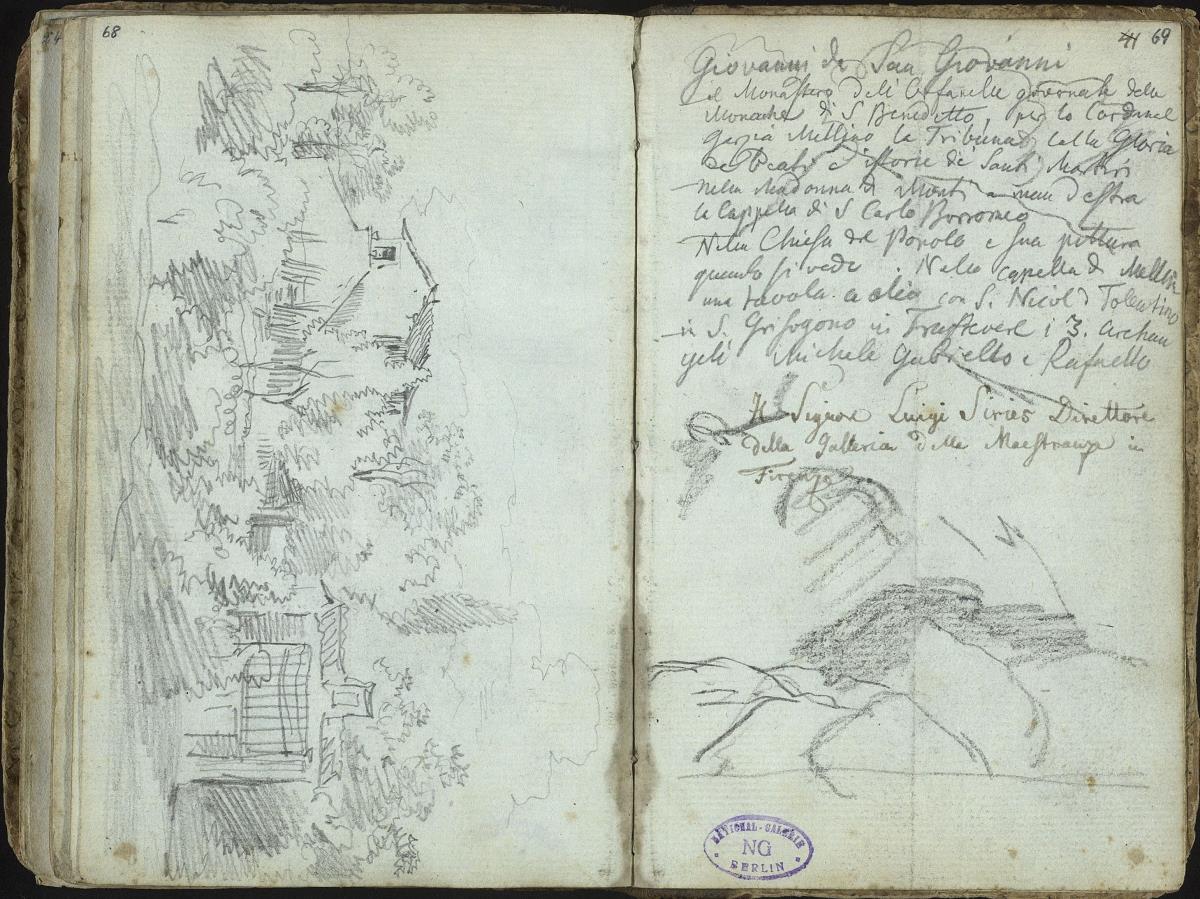 54 68
69
Giovanni da San Giovanni
il Monastero dell Orfanelle governate delle
Monache di S Benedetto, per lo Cardinal
Mellino la Tribuna colla Gloria
de Beati e istorie de Santi Martiri
nella Madonna di Monti a man destra
la Cappella di S Carlo Borromeo
Nella Chiesa del Popolo e sua pittura
quanto si vede. Nella capella di Mellini
una tavola a olio con S. Nicol Tolentino
in S. Grisogono in Trastevere i 3. archan
geli Michele Gabriello e Rafaello
Il Signore Luigi Siries Direttore
della Galleria delle Maestranze in
Firenze
NATIONAL-GALERIE
NG
BERLIN